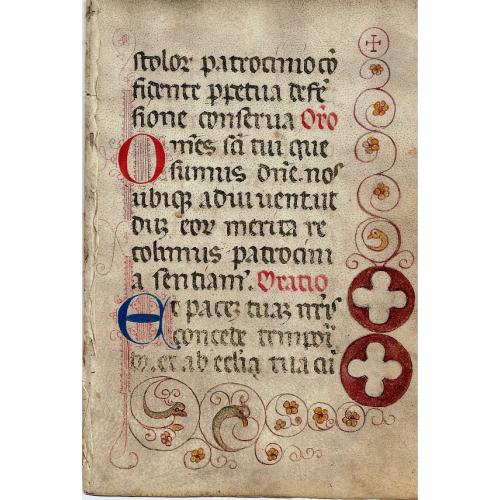 stoloꝝ patrocinio cō
fidente ꝑpetua defē
sione conserua Oro̅
Omēs sc̄i tui que
sumus dn̄e. nos
ubiqꝫ adiuuent. ut
duꝫ eoꝝ merita re
colimus patrocini
a sentiam⁹. Oratio
Et paceꝫ tuaꝫ nr̄is
concede tempoꝛi
bꝫ. et ab ecl̄ia tua cū